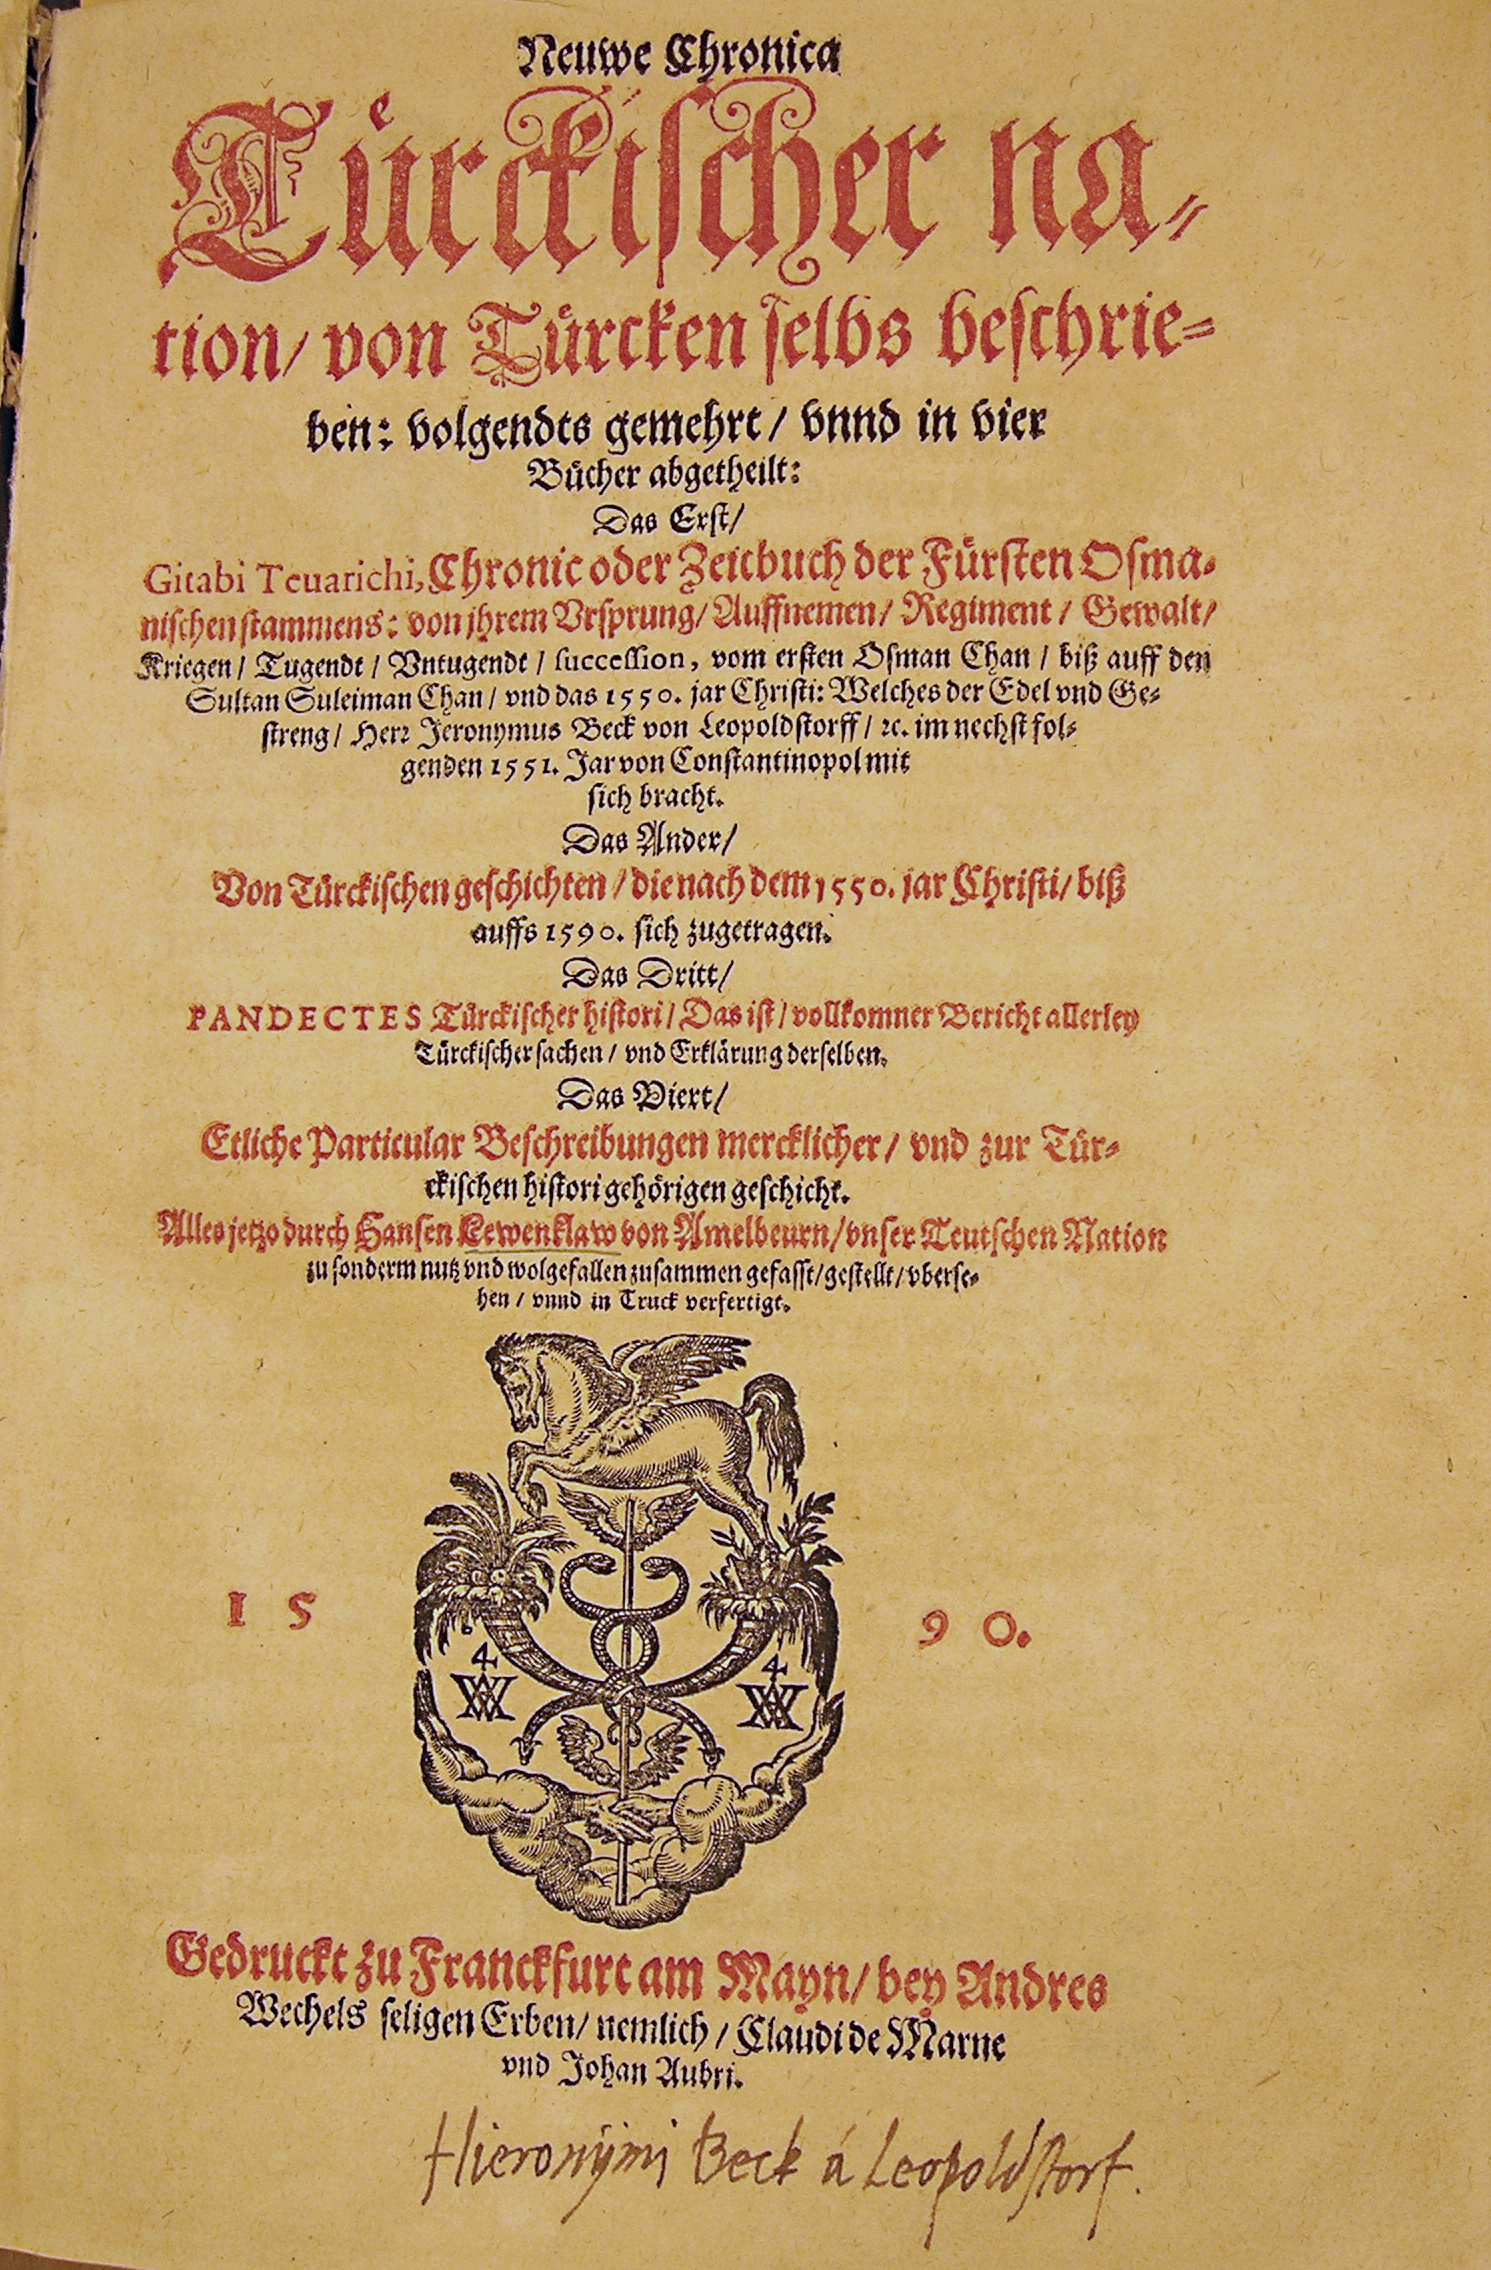 Neuwe Chronica
Tuͤrckiſcher na⸗
tion/ von Tuͤrcken ſelbs beſchrie⸗
ben: volgendts gemehrt/ vnnd in vier
Buͤcher abgetheilt:
Das Erſt/
Gitabi Teuarichi, Chronic oder Zeitbuch der Fuͤrſten Oſma⸗
niſchen ſtammens: von jhrem Vrſprung/ Auffnemen/ Regiment/ Gewalt/
Kriegen/ Tugendt/ Vntugendt/ ſucceſſion, vom erſten Oſman Chan/ biß auff den
Sultan Suleiman Chan/ vnd das 1550. jar Chriſti: Welches der Edel vnd Ge⸗
ſtreng/ Herꝛ Jeronymus Beck von Leopoldſtorff/ ꝛc. im nechſt fol⸗
genden 1551. Jar von Conſtantinopol mit
ſich bracht.
Das Ander/
Von Tuͤrckiſchen geſchichten/ die nach dem 1550. jar Chriſti/ biß
auffs 1590. ſich zugetragen.
Das Dritt/
PANDECTES Tuͤrckiſcher hiſtori/ Das iſt/ vollkomner Bericht allerley
Tuͤrckiſcher ſachen/ vnd Erklaͤrung derſelben.
Das Viert/
Etliche Particular Beſchreibungen mercklicher/ vnd zur Tuͤr⸗
ckiſchen hiſtori gehoͤrigen geſchicht.
Alles jetzo durch Hanſen Lewenklaw von Amelbeurn/ vnſer Teutſchen Nation
zu ſonderm nutz vnd wolgefallen zuſammen gefaſſt/ geſtellt/ vberſe⸗
hen/ vnnd in Truck verfertigt.
15 90.
Gedruckt zu Franckfurt am Mayn/ bey Andres
Wechels ſeligen Erben/ nemlich/ Claudi de Marne
vnd Johan Aubri.
Hieronÿmi Beck á Leopoldſtorf.